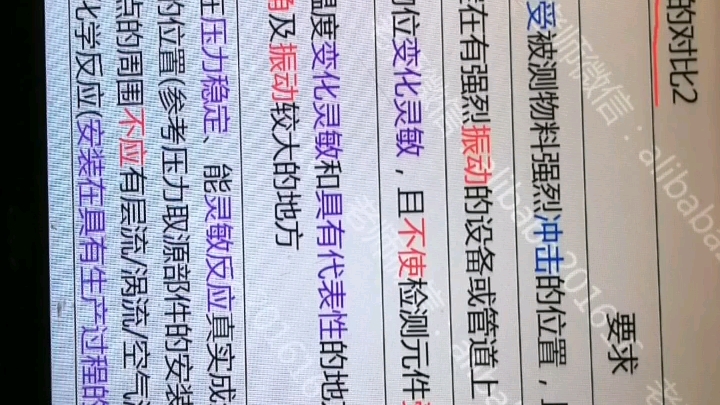 的对比2
要求
受被测物料强烈冲击的位置，
在有强烈振动的设备或管道上
位变化灵敏，且不使检测元件
温度变化灵敏和具有代表性的地
及振动较大的地方
压力稳定、能灵敏反应真实成
的位置(参考压力取源部件的安装
点的周围不应有层流/涡流/空气
化学反应(安装在具有生产过程的
老师微信：alibaba